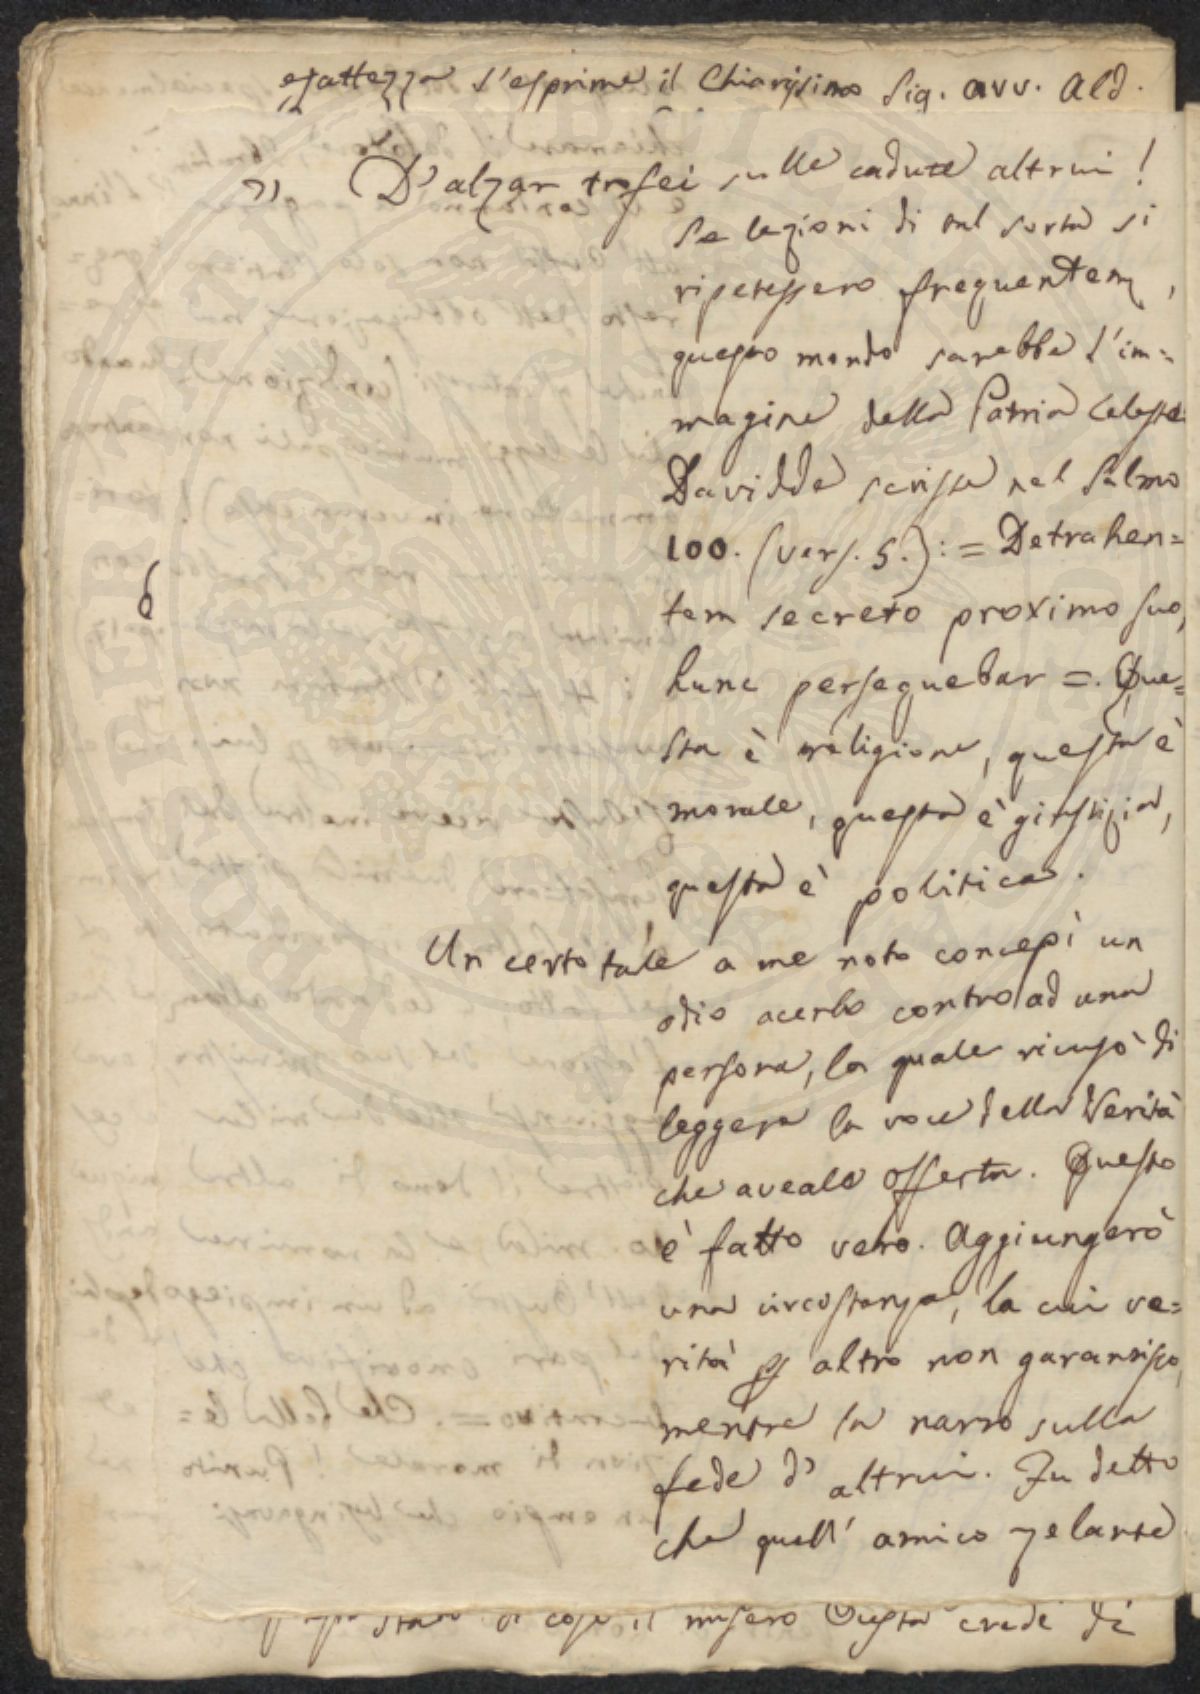 esattezza s'esprime il Chiarisimo Sig. avv. Ald.
D'alzar trofei sulle cadute altrui!
Se lezioni di tal sorta si
ripetessero frequentem,
questo mondo sarebbe l'im=
magine della Patria Celeste
Davidde scrisse nel Salmo
100. (vers. 5.): = Detrahen=
tem secreto proximo suo,
hunc persequebar =. Que=
sta è religione, questa è
morale, questa è giustizia,
questa è politica.
Un certo tale a me noto concepì un
odio acerbo contro ad una
persona, la quale ricusò di
leggere la voce della Verità
che aveale offerta. Questo
è fatto vero. Aggiungerò
una circostanza, la cui ve=
rità p altro non garantisco,
mentre la narro sulla
fede d'altrui. Fu detto
che quell'amico zelante
di cose il misero Questa crede di
6
PERITI